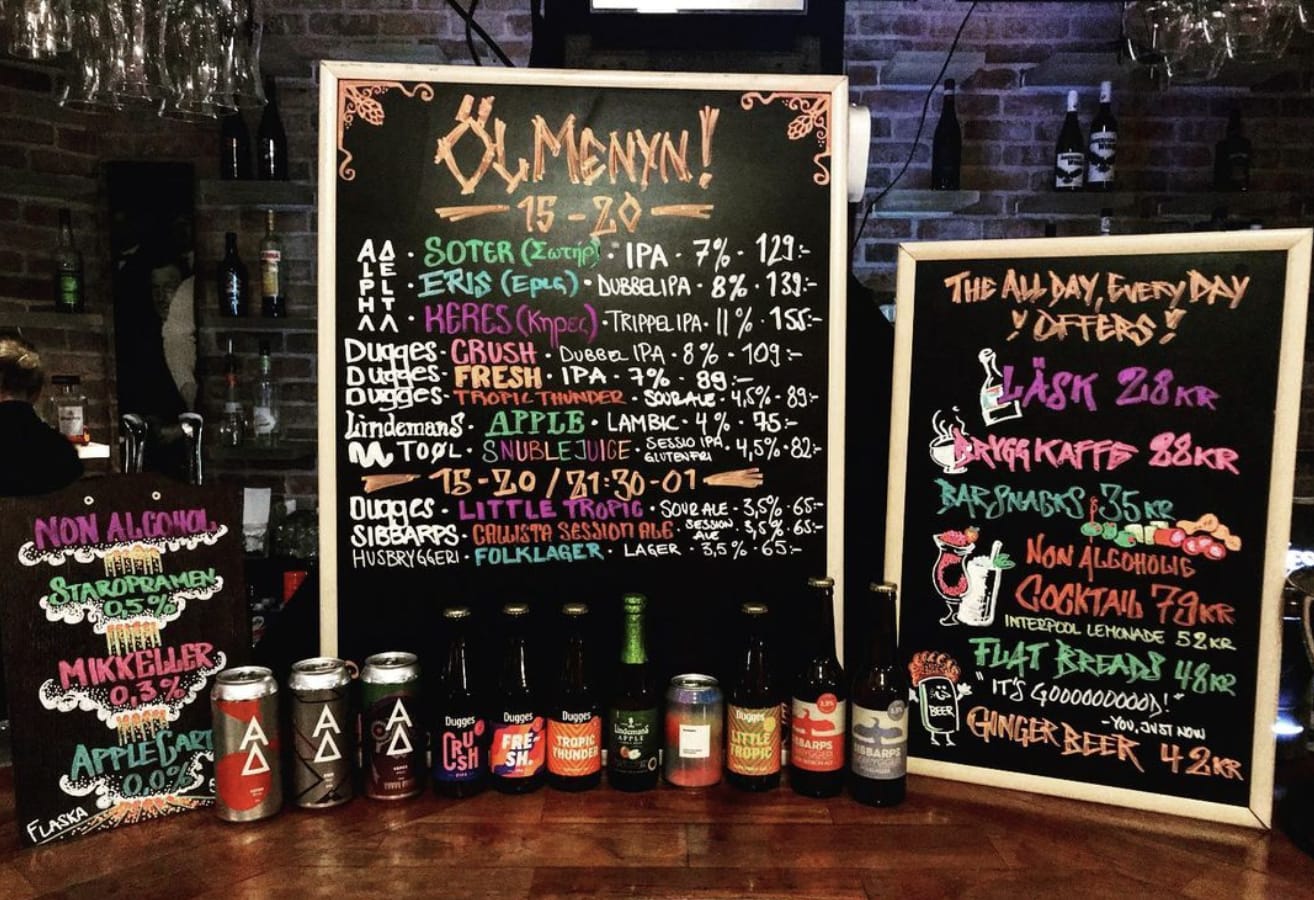 ÖLMENYN!
15-20
ALPHA DELTA
SOTER (Σωτήρ) · IPA · 7% · 129:-
ERIS (Ερις) · DUBBELIPA · 8% · 139:-
KERES (Κηρες) · TRIPPELIPA · 11% · 155:-
Dugges · CRUSH · DUBBEL IPA · 8% · 109:-
Dugges · FRESH · IPA · 7% · 89:-
Dugges · TROPIC THUNDER · SOUR ALE · 4,5% · 89:-
Lindemans · APPLE · LAMBIC · 4% · 75:-
TOØL · SNUBLEJUICE · SESSIO IPA, GLUTENFRI · 4,5% · 82:-
15-20 / 21:30-01
Dugges · LITTLE TROPIC · SOUR ALE · 3,5% · 65:-
SIBBARPS · CALLISTA SESSION ALE · SESSION ALE · 3,5% · 65:-
HUSBRYGGERI · FOLKLAGER · LAGER · 3,5% · 65:-
THE ALL DAY, EVERY DAY
OFFERS!
LÄSK 28KR
BRYGGKAFFE 28KR
BARSNACKS 35KR
NON ALCOHOLIC
COCKTAIL 79KR
INTERPOOL LEMONADE 52KR
FLAT BREADS 48KR
"IT'S GOOOOOOOOOD!"
-YOU, JUST NOW
BEER
GINGER BEER 42KR
NON ALCOHOL
STAROPRAMEN
0,5%
MIKKELLER
0,3%
APPLECART
0,0%
FLASKA
Dugges
CRUSH
Dugges
FRESH.
Dugges
TROPIC
THUNDER
Lindemans
APPLE
Dugges
LITTLE
TROPIC
SIBBARPS
SIBBARPS